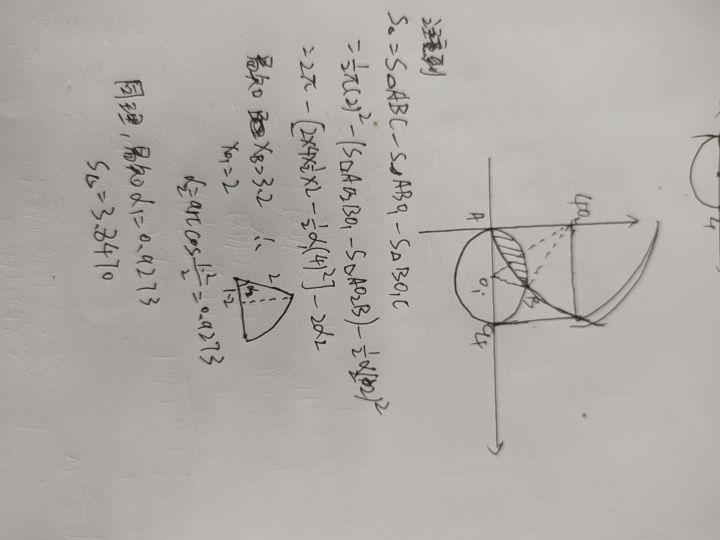 注意到
S₀ = S△ABC - S△ABO₁ - S△BO₁C
= ½π(2)² - (S△AO₂BO₁ - S△AO₂B) - ½α₂(2)²
= 2π - [2×4×½×2 - ½α₁(4)²] - 2α₂
易知 X_B = 3.2
X_O₁ = 2
∴ α₂ = arc cos 1.2/2 = 0.9273
2
α₂
1.2
同理, 易知 α₁ = 0.9273
S₀ = 3.8470
A
O₁
B
4
4
O₂
4